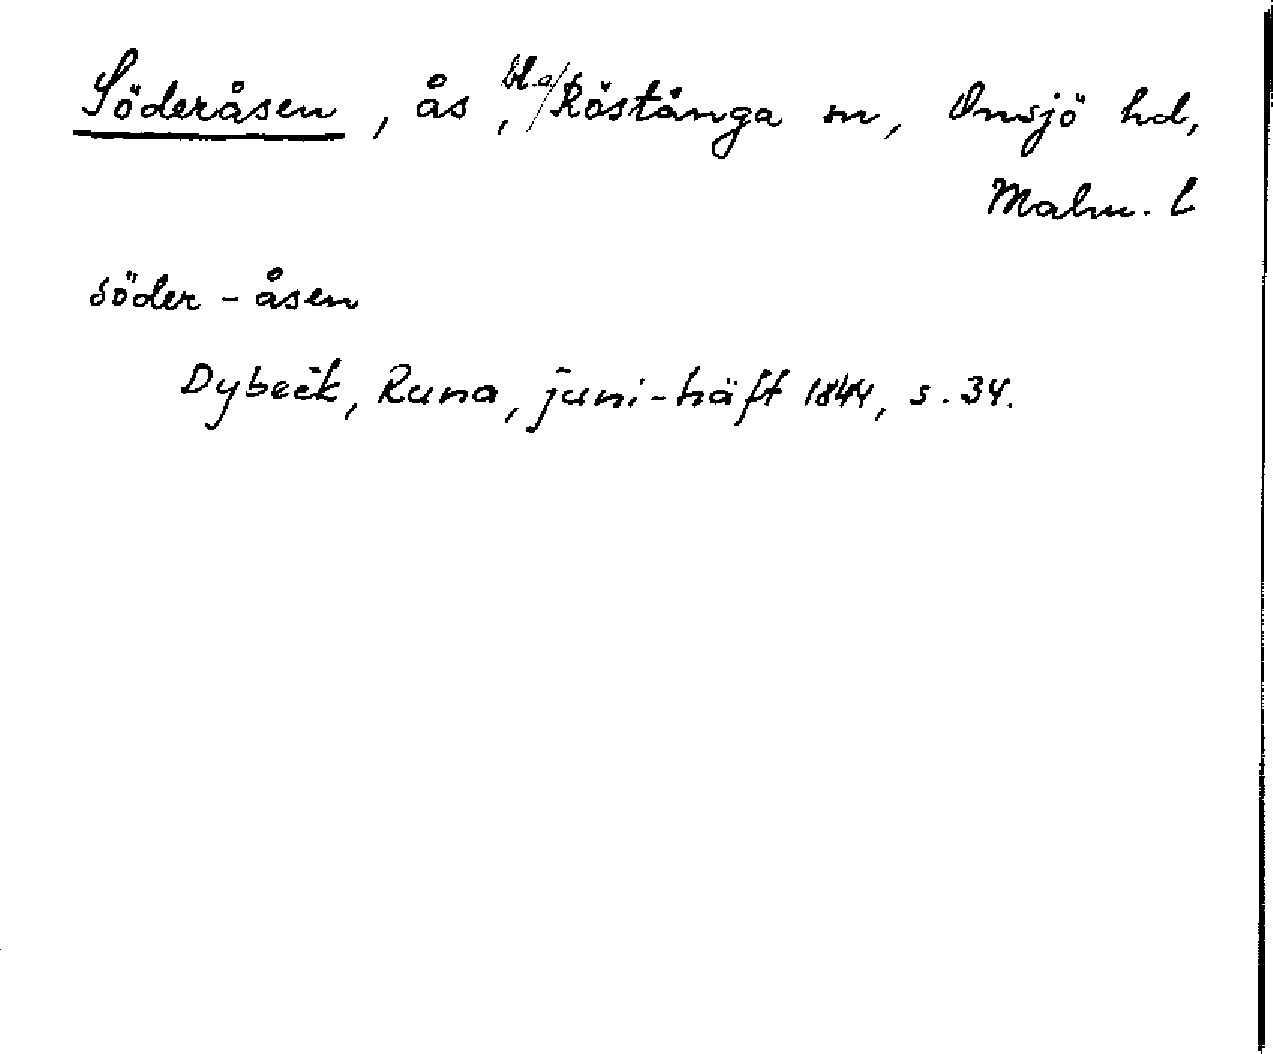 Söderåsen, ås, bl.a/Röstånga sn, Onsjö hd,
Malm. l
söder - åsen
Dybeck, Runa, juni-häft 1844, s. 34.